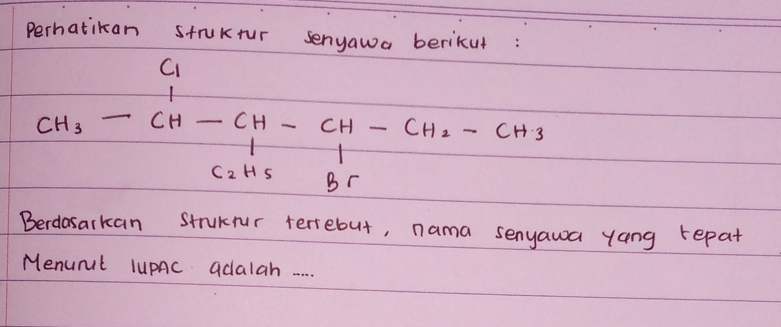 Perhatikan struktur senyawa berikut :
Cl
CH3 — CH — CH — CH — CH2 — CH3
C2H5 Br
Berdasarkan struktur tersebut, nama senyawa yang tepat
Menurut IUPAC adalah .....